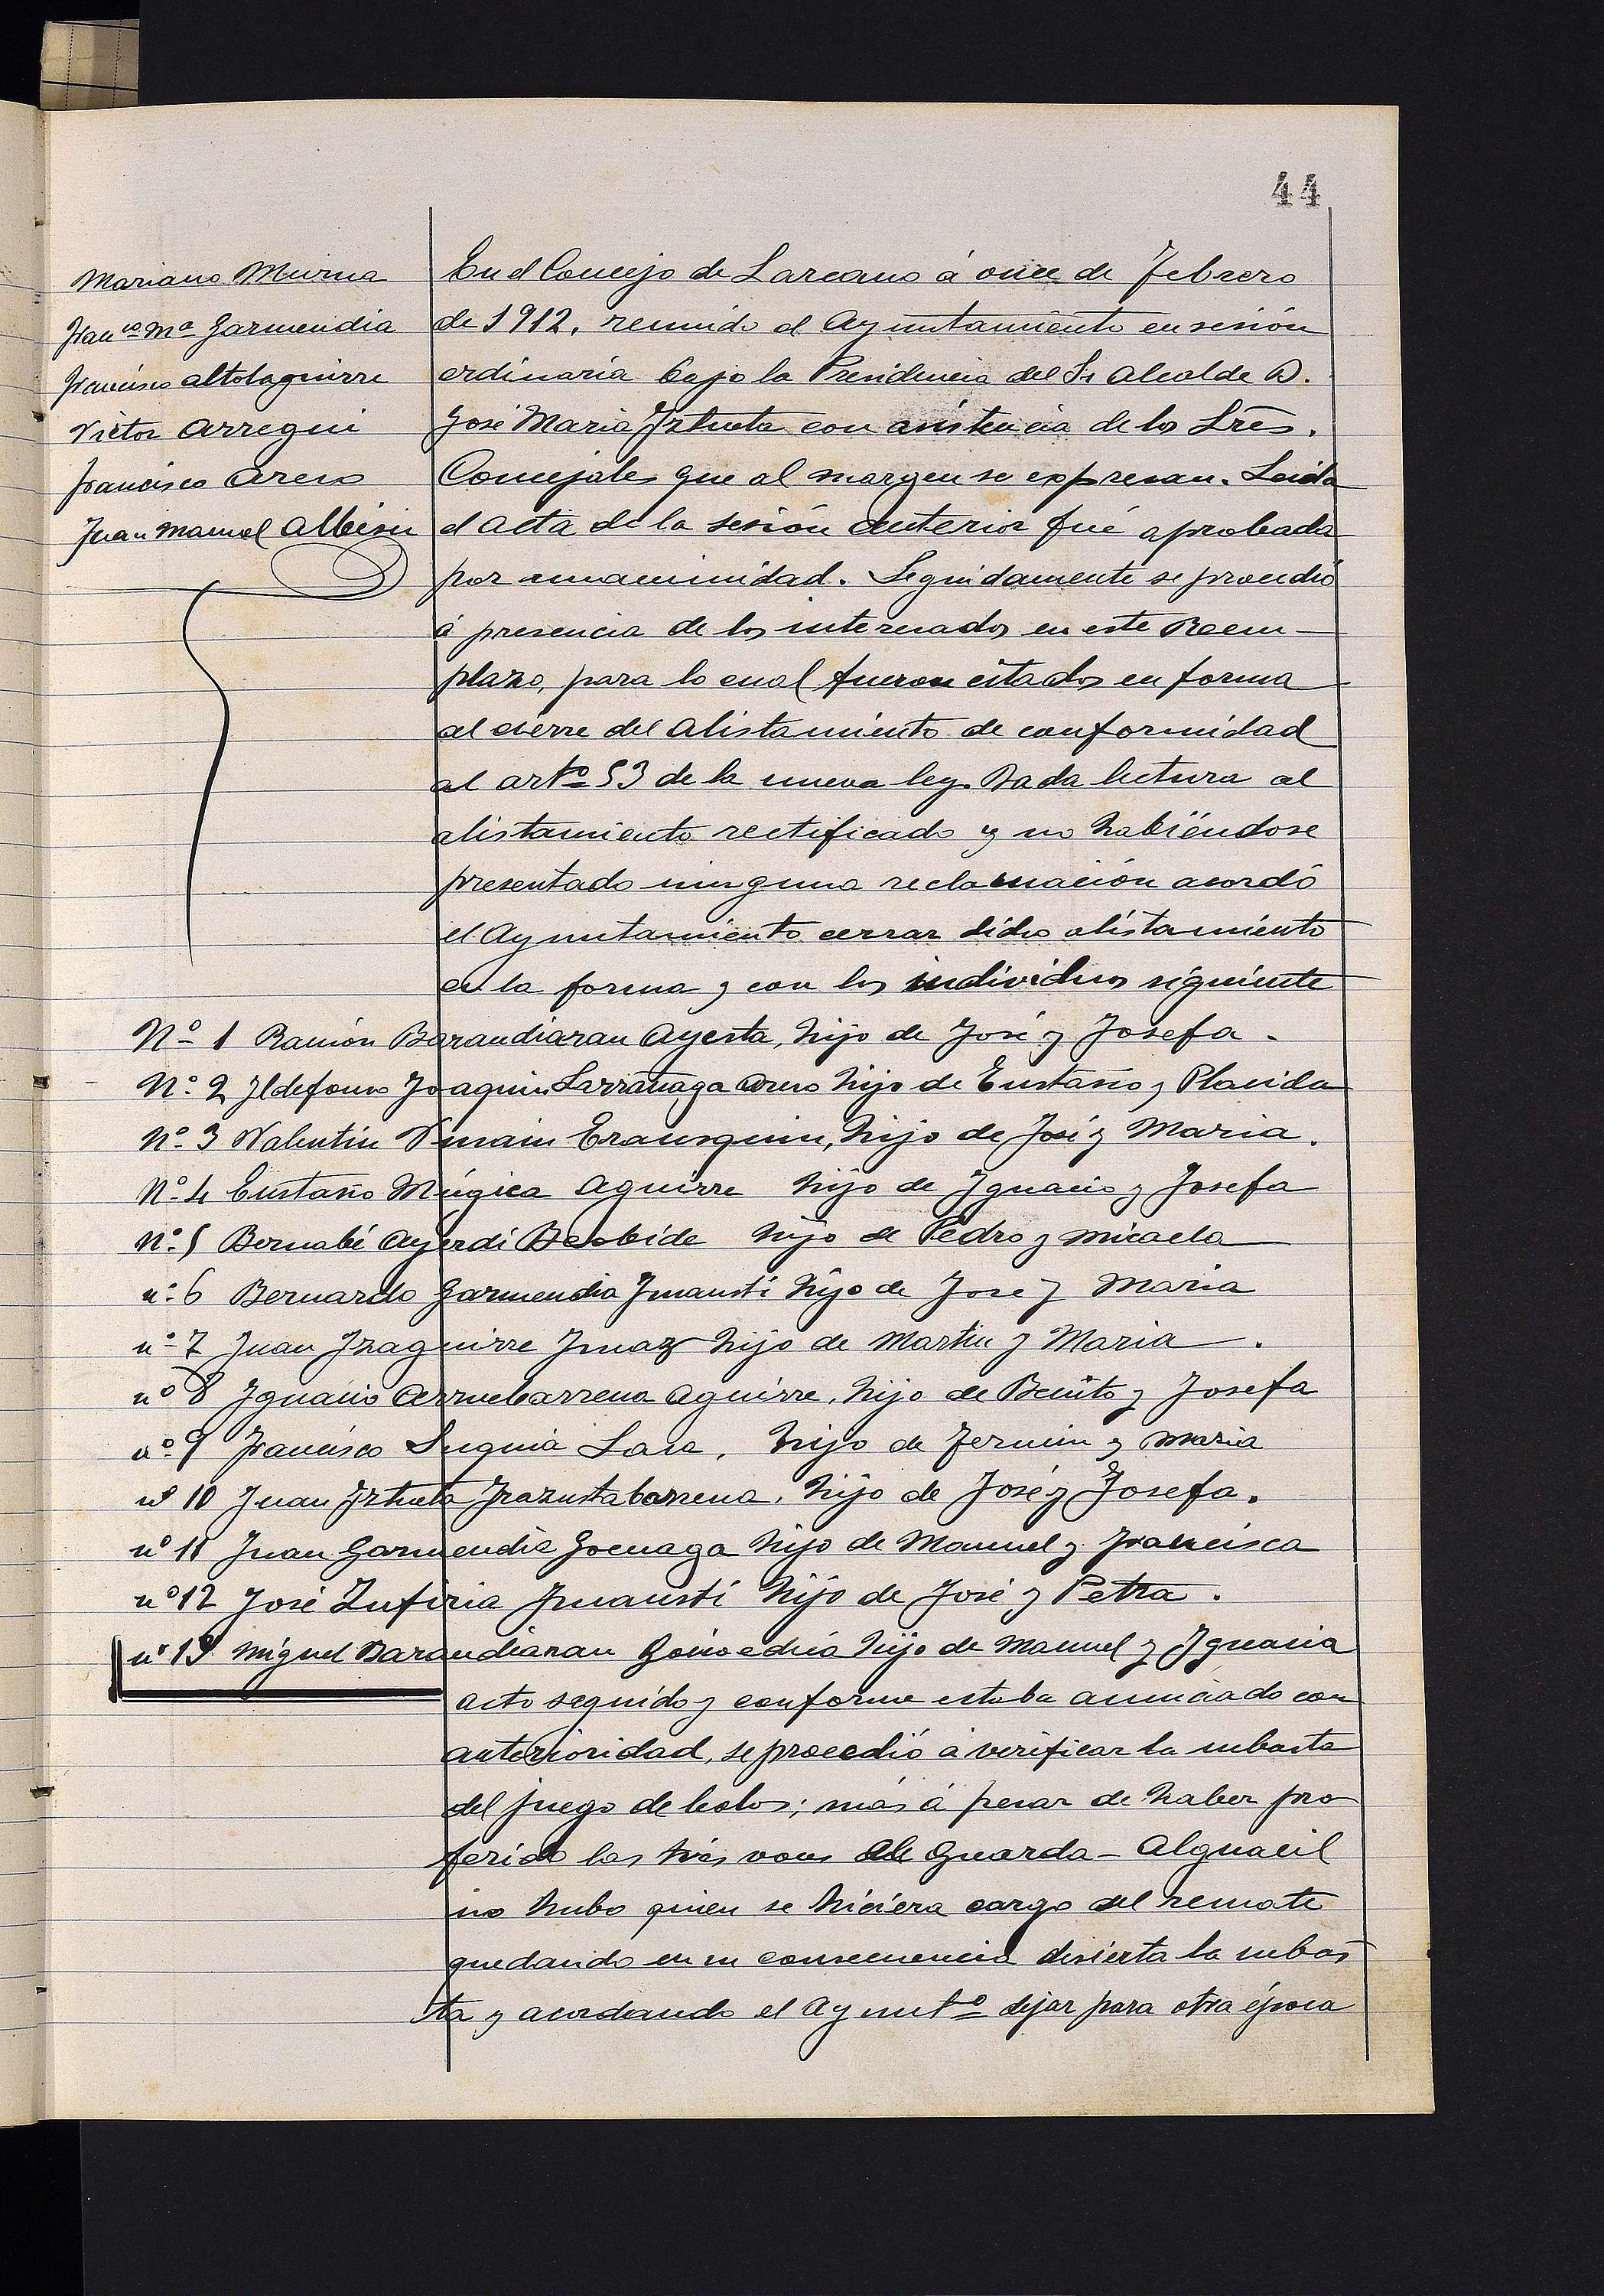 44
Mariano Murua
Franco Ma Garmendia
Francisco Altolaguirre
Victor Arregui
Francisco Areso
Juan Manuel Albisu
En el Concejo de Lazcano á once de Febrero
de 1912, reunido el Ayuntamiento en sesión
ordinaria bajo la Presidencia del Sr Alcalde D.
José Maria Iztueta con asistencia de los Sres.
Concejales que al margen se expresan. Leida
el acta de la sesión anterior fué aprobada
por unanimidad. Seguidamente se procedió
á presencia de los interesados en este Reem-
plazo, para lo cual fueron citados en forma
al cierre del alistamiento de conformidad
al arto 53 de la nueva ley. Dada lectura al
alistamiento rectificado y no habiéndose
presentado ninguna reclamación acordó
el Ayuntamiento cerrar dicho alistamiento
en la forma y con los individuos siguiente
No 1 Ramón Barandiaran Ayesta, hijo de José y Josefa.
No 2 Ildefonso Joaquin Larrañaga Areso hijo de Eustasio y Placida
No 3 Valentin Ymain Erausquin, hijo de José y Maria.
No 4 Eustasio Múgica Aguirre hijo de Ignacio y Josefa
No 5 Bernabé Ayerdi Beobide hijo de Pedro y Micaela
no 6 Bernardo Garmendia Ynausti hijo de José y Maria
no 7 Juan Izaguirre Ymaz hijo de Martin y Maria.
no 8 Ignacio Arruebarrena Aguirre, hijo de Benito y Josefa
no 9 Francisco Suquia Lasa, hijo de Fermin y Maria
no 10 Juan Iztueta Irazustabarrena, hijo de José y Josefa.
no 11 Juan Garmendia Goenaga hijo de Manuel y Francisca
no 12 José Zufiria Ynausti hijo de José y Petra.
no 13 Miguel Barandiaran hijo de Manuel y Ignacia
Acto seguido y conforme estaba anunciado con
anterioridad, se procedió á verificar la subasta
del juego de bolos; más á pesar de haber pro
ferido las trés voces el Guarda-Alguacil
no hubo quien se hiciera cargo del remate
quedando en su consecuencia desierta la subas
ta y acordando el Ayunto dejar para otra época